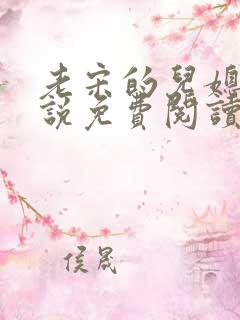 老宋的兒媳
說免費閱讀
侯晟